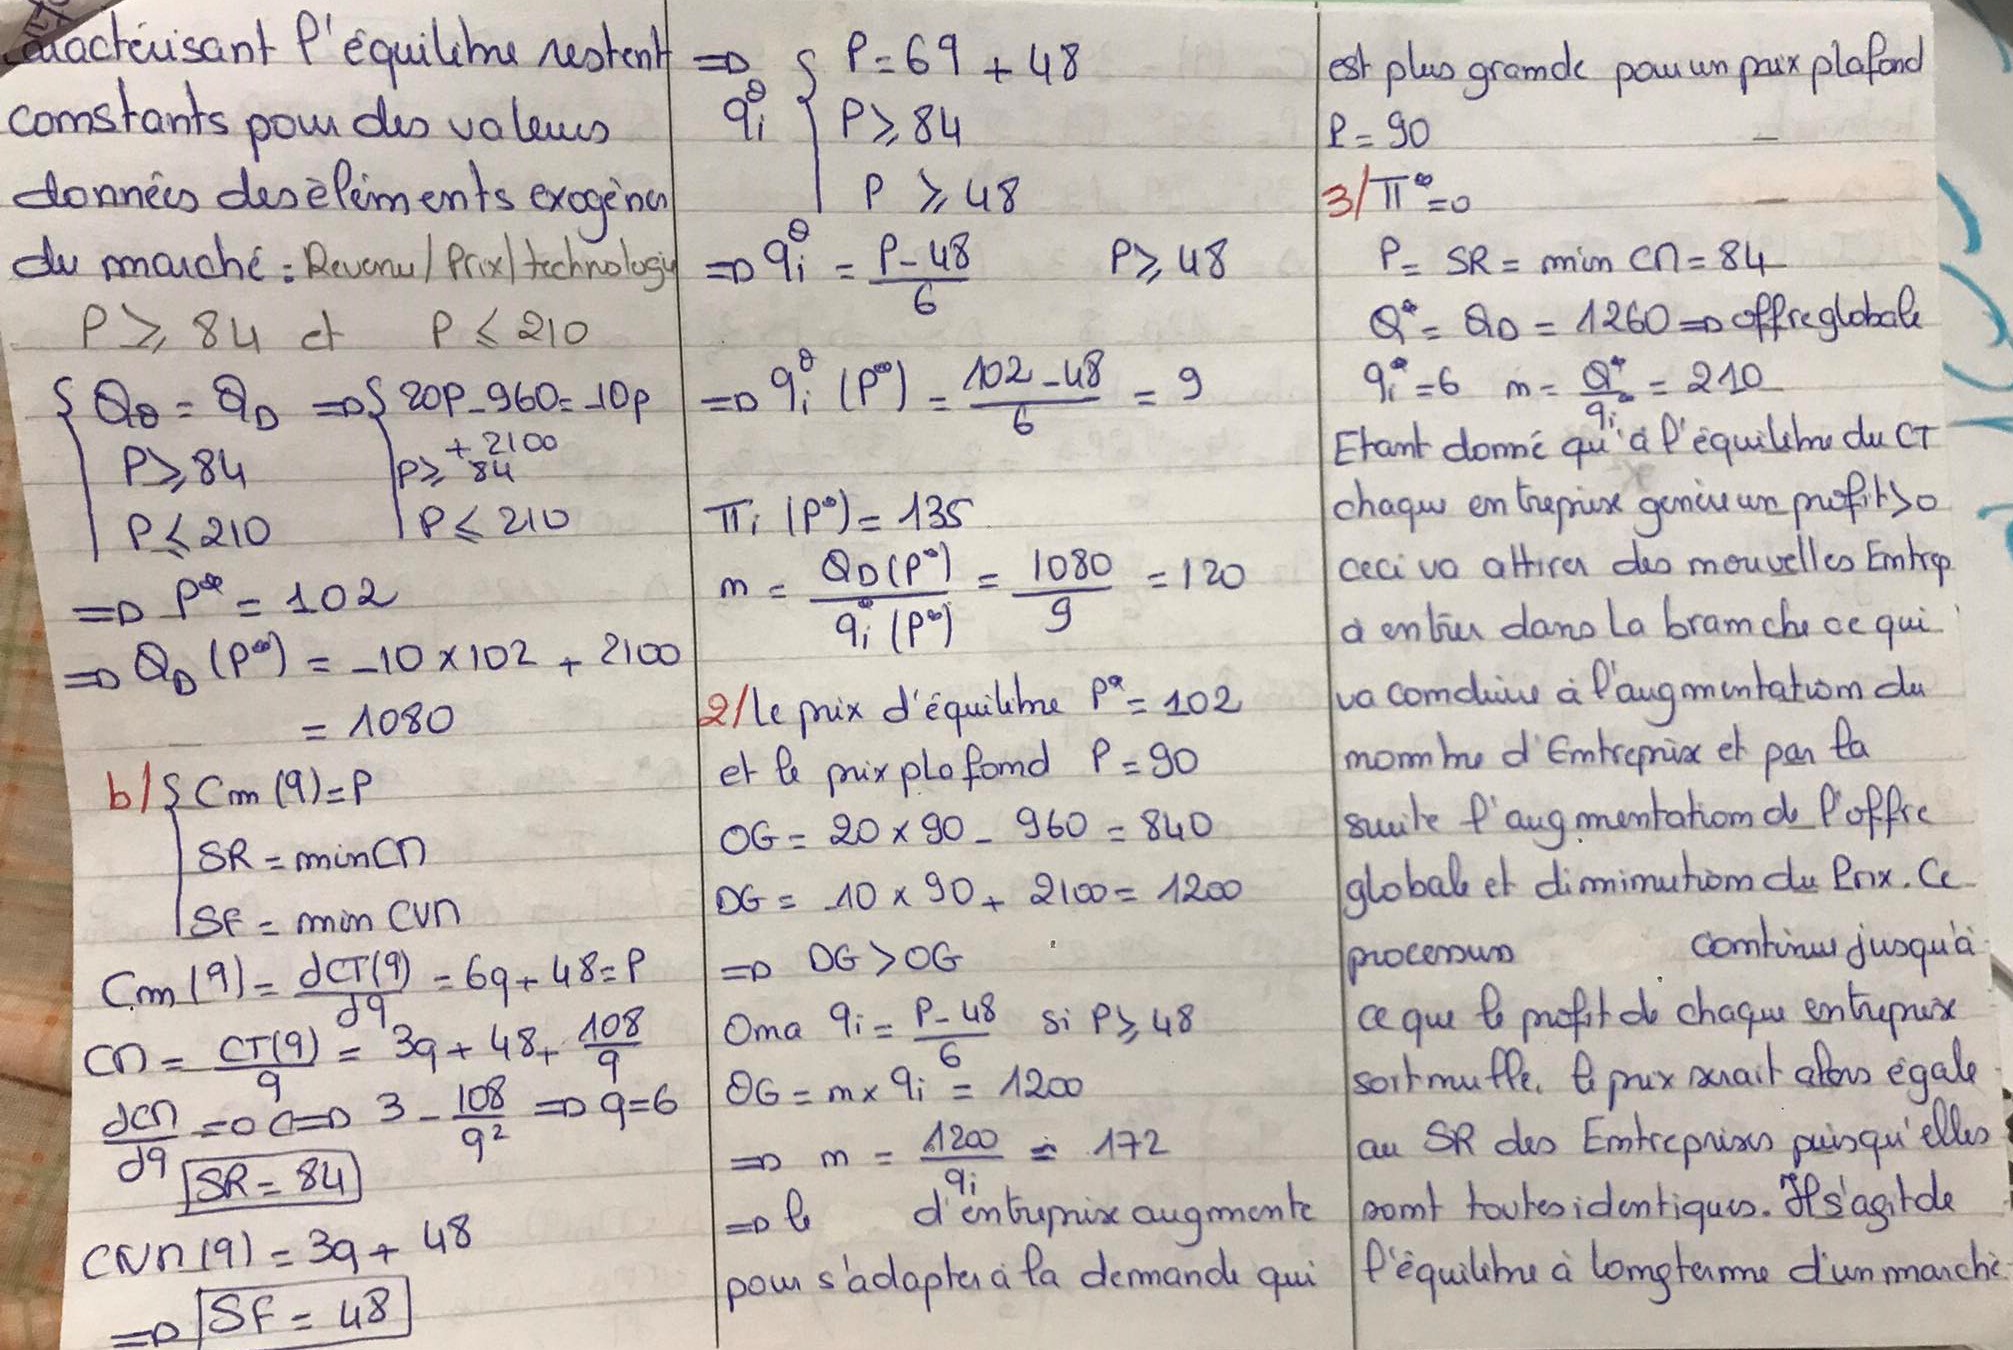 caractérisant l'équilibre restent
constants pour des valeurs
données des éléments exogènes
du marché : Revenu / Prix / technologie
P ≥ 84 et P ≤ 210
{ Qθ = QD ⇒ { 20P - 960 = -10p
+ 2100
P ≥ 84 P ≥ 84
P ≤ 210 P ≤ 210
⇒ P* = 102
⇒ QD (P*) = -10 × 102 + 2100
= 1080
b/ { Cm (q) = P
SR = min CM
SF = min CVM
Cm (q) = dCT(q)/dq = 6q + 48 = P
CM = CT(q)/q = 3q + 48 + 108/q
dCM/dq = 0 ⇔ 3 - 108/q² ⇒ q = 6
SR = 84
CVM (q) = 3q + 48
⇒ SF = 48
⇒ { P = 6q + 48
qiθ P ≥ 84
P ≥ 48
⇒ qiθ = P - 48 / 6 P ≥ 48
⇒ qiθ (P*) = 102 - 48 / 6 = 9
πi (P*) = 135
n = QD (P*) / qi* (P*) = 1080 / 9 = 120
2/ Le prix d'équilibre P* = 102
et le prix plafond P = 90
OG = 20 × 90 - 960 = 840
DG = -10 × 90 + 2100 = 1200
⇒ DG > OG
On a qi = P - 48 / 6 si P ≥ 48
OG = n × qi = 1200
⇒ n = 1200 / qi = 172
⇒ le d'entreprise augmente
pour s'adapter à la demande qui
est plus grande pour un prix plafond
P = 90
3/ π* = 0
P = SR = min CM = 84
Q* = QD = 1260 ⇒ offre globale
qi* = 6 n = Q* / qi* = 210
Etant donné qu'à l'équilibre du CT
chaque entreprise génère un profit > 0
ceci va attirer des nouvelles Entrep
à entrer dans la branche ce qui
va conduire à l'augmentation du
nombre d'Entreprise et par la
suite l'augmentation de l'offre
globale et diminution du Prix. Ce
processus continue jusqu'à
ce que le profit de chaque entreprise
soit nulle. Le prix serait alors égale
au SR des Entreprises puisqu'elles
sont toutes identiques. Il s'agit de
l'équilibre à long terme d'un marché